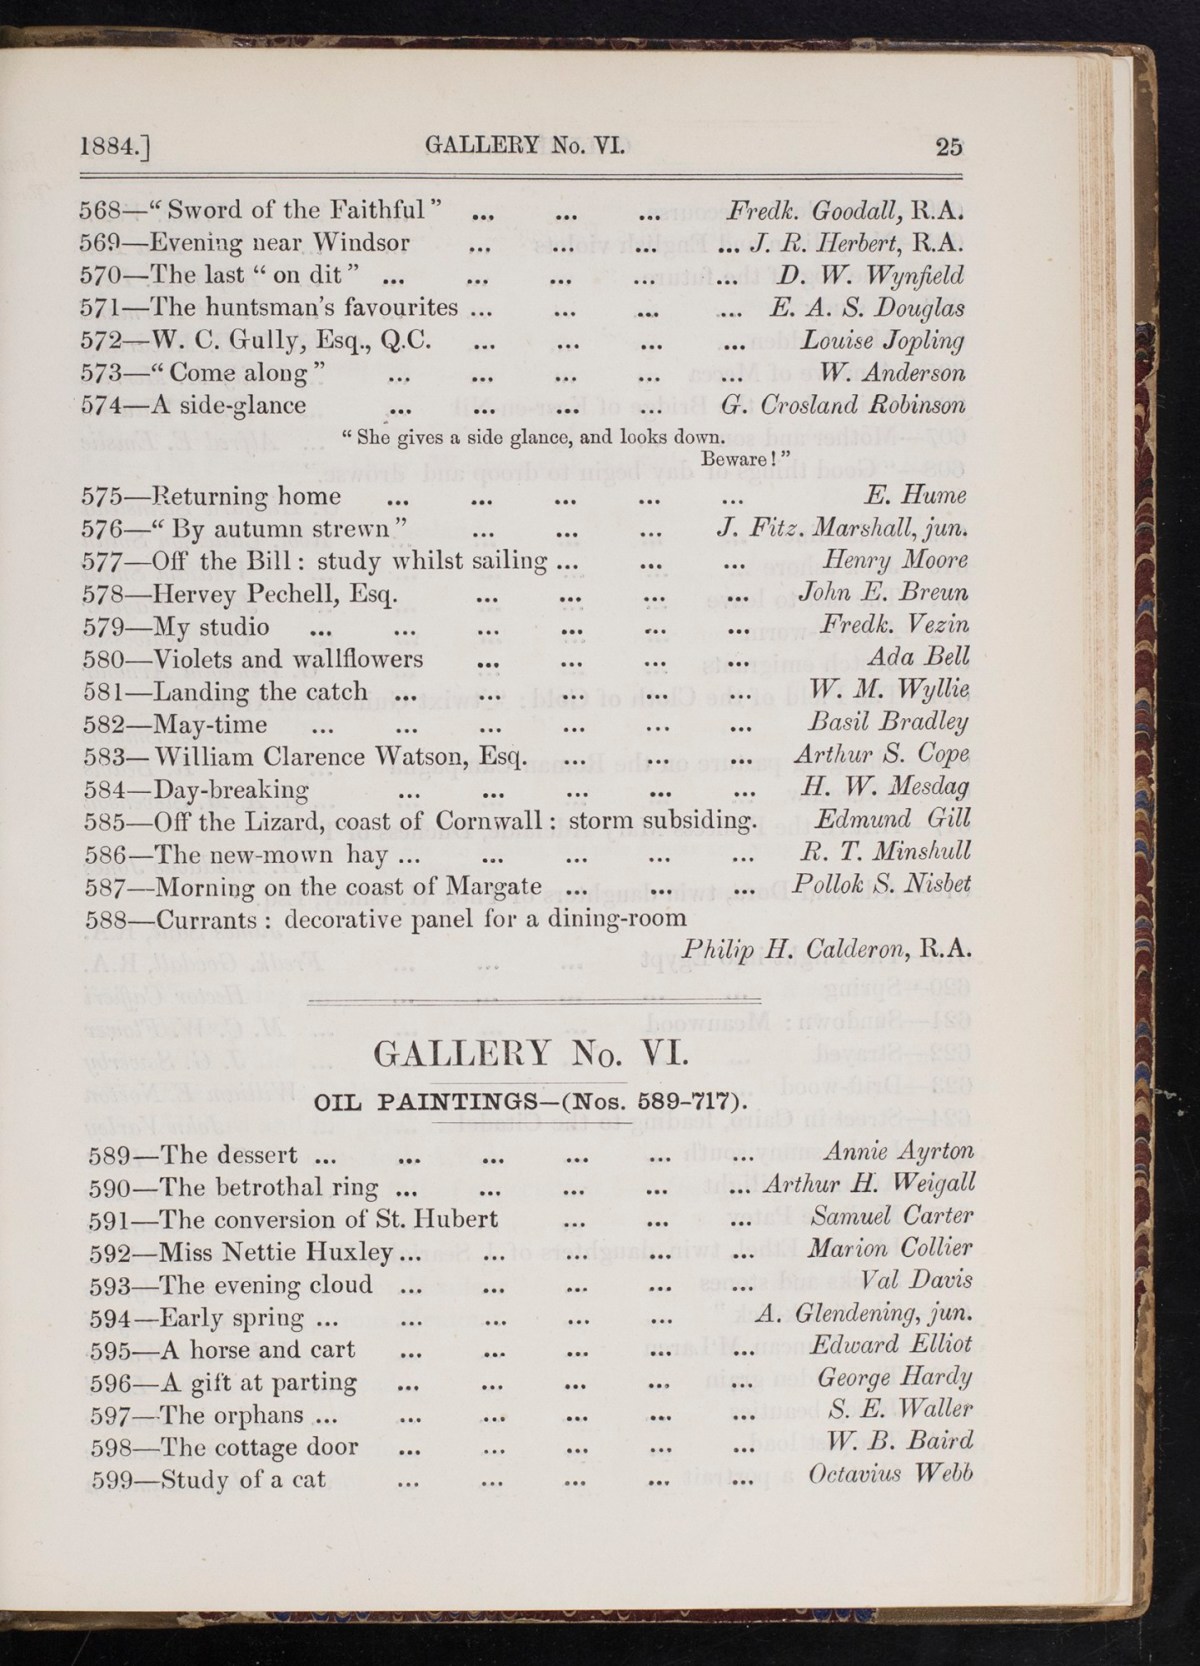 1884.] GALLERY No. VI. 25
568—“Sword of the Faithful” ... ... ... Fredk. Goodall, R.A.
569—Evening near Windsor ... ... ... ... J. R. Herbert, R.A.
570—The last “on dit” ... ... ... ... ... D. W. Wynfield
571—The huntsman's favourites ... ... ... ... E. A. S. Douglas
572—W. C. Gully, Esq., Q.C. ... ... ... ... Louise Jopling
573—“Come along” ... ... ... ... ... W. Anderson
574—A side-glance ... ... ... ... G. Crosland Robinson
“She gives a side glance, and looks down.
Beware!”
575—Returning home ... ... ... ... ... E. Hume
576—“By autumn strewn” ... ... ... J. Fitz. Marshall, jun.
577—Off the Bill: study whilst sailing ... ... ... Henry Moore
578—Hervey Pechell, Esq. ... ... ... ... John E. Breun
579—My studio ... ... ... ... ... ... Fredk. Vezin
580—Violets and wallflowers ... ... ... ... Ada Bell
581—Landing the catch ... ... ... ... ... W. M. Wyllie
582—May-time ... ... ... ... ... ... Basil Bradley
583—William Clarence Watson, Esq. ... ... ... Arthur S. Cope
584—Day-breaking ... ... ... ... ... H. W. Mesdag
585—Off the Lizard, coast of Cornwall: storm subsiding. Edmund Gill
586—The new-mown hay ... ... ... ... ... R. T. Minshull
587—Morning on the coast of Margate ... ... ... Pollok S. Nisbet
588—Currants: decorative panel for a dining-room
Philip H. Calderon, R.A.
GALLERY No. VI.
OIL PAINTINGS—(Nos. 589-717).
589—The dessert ... ... ... ... ... ... Annie Ayrton
590—The betrothal ring ... ... ... ... ... Arthur H. Weigall
591—The conversion of St. Hubert ... ... ... Samuel Carter
592—Miss Nettie Huxley ... ... ... ... ... Marion Collier
593—The evening cloud ... ... ... ... ... Val Davis
594—Early spring ... ... ... ... ... A. Glendening, jun.
595—A horse and cart ... ... ... ... ... Edward Elliot
596—A gift at parting ... ... ... ... ... George Hardy
597—The orphans ... ... ... ... ... ... S. E. Waller
598—The cottage door ... ... ... ... ... W. B. Baird
599—Study of a cat ... ... ... ... ... Octavius Webb